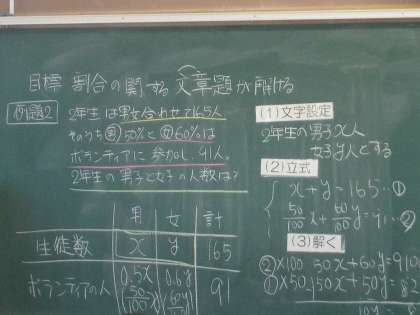 目標 割合の関する文章題が解ける
例題2
2年生は男女合わせて165人
そのうち男50%と女60%は
ボランティアに参加し、91人。
2年生の男子と女子の人数は?
男 女 計
生徒数 x y 165
ボランティアの人 0.5x 0.6y 91
(50/100 x) (60/100 y)
(1)文字設定
2年生の男子x人
女子y人とする
(2)立式
x+y=165…①
50/100 x+60/100 y=91…②
(3)解く
②×100 50x+60y=910
①×50 50x+50y=82
10y=8